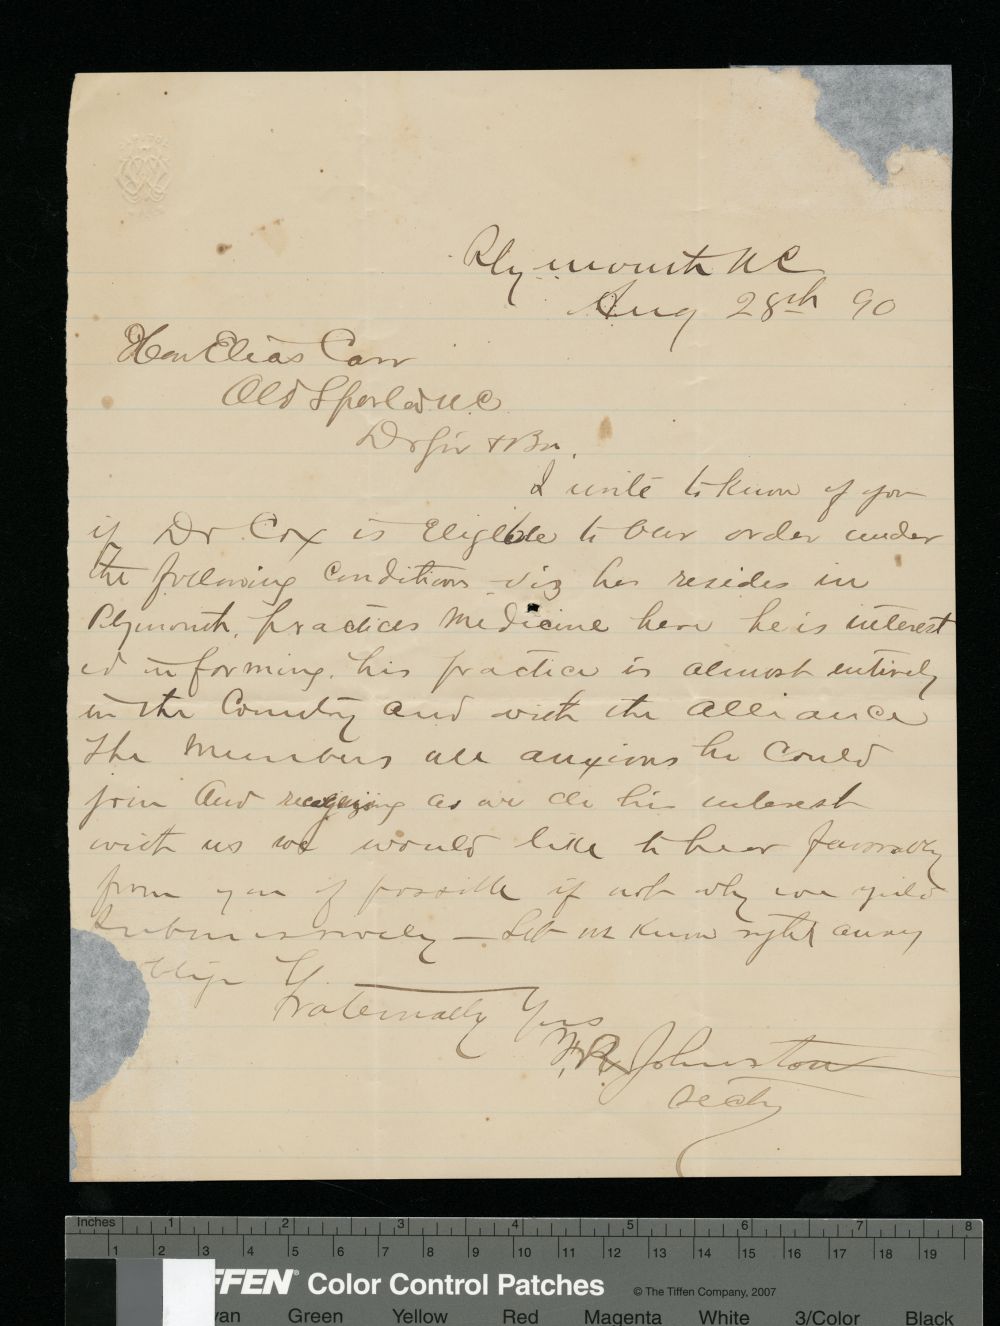 Plymouth NC
Aug 28th 90
Hon Elias Carr
Old Sparta NC
Dr Sir & Bro.
I write to know of you
if Dr Cox is Eligible to our order under
the following conditions viz he resides in
Plymouth, practices Medicine here he is interest
ed in farming. his practice is almost entirely
in the Country and with the Alliance
the Members are anxious he could
join And recognizing as we do his interest
with us we would like to hear favorably
from you if possible if not why we yield
submissively — Let us know right away
oblige
Fraternally Yours
Johnston
Secty
Inches 1 2 3 4 5 6 7 8
1 2 3 4 5 6 7 8 9 10 11 12 13 14 15 16 17 18 19
FFEN® Color Control Patches © The Tiffen Company, 2007
yan Green Yellow Red Magenta White 3/Color Black